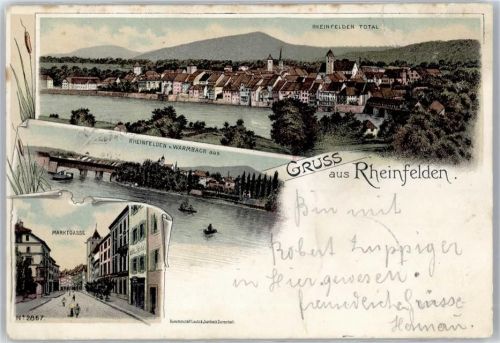 RHEINFELDEN TOTAL
RHEINFELDEN v. WARMBACH aus
GRUSS
aus Rheinfelden.
MARKTGASSE
No 2867.
Bin mit
Robert
in Hier gewesen.
freundliche Grüsse